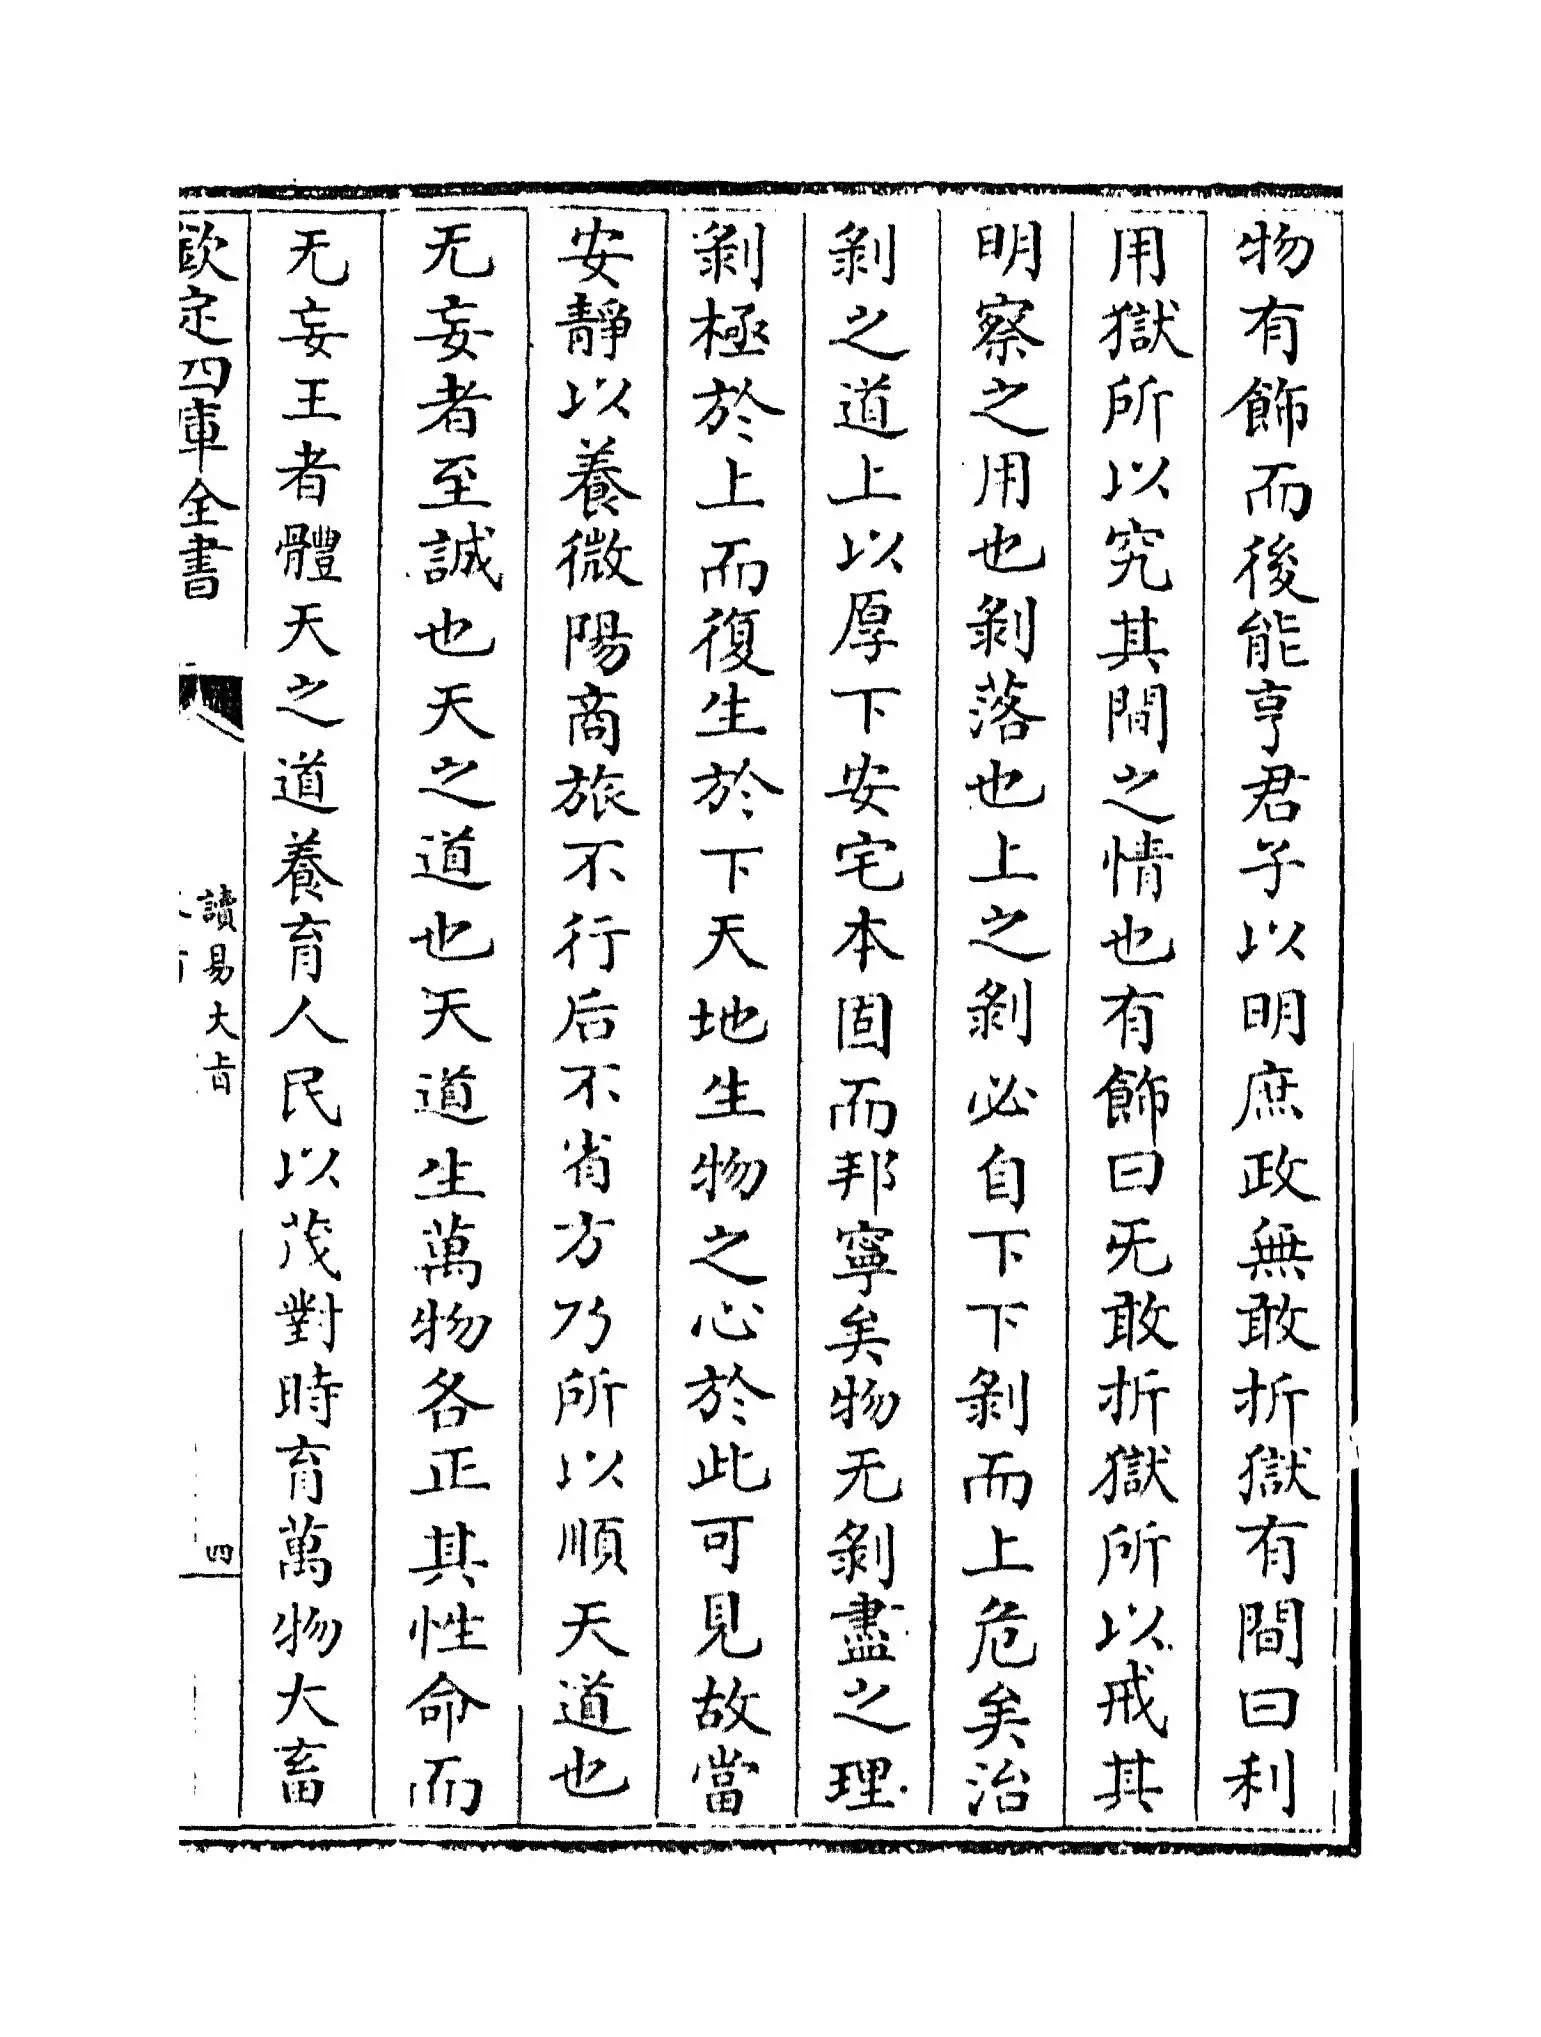 物有飾而後能亨君子以明庶政無敢折獄有間曰利
用獄所以究其間之情也有飾曰旡敢折獄所以戒其
明察之用也剝落也上之剝必自下下剝而上危矣治
剝之道上以厚下安宅本固而邦寧矣物无剝盡之理
剝極於上而復生於下天地生物之心於此可見故當
安靜以養微陽商旅不行后不省方乃所以順天道也
无妄者至誠也天之道也天道生萬物各正其性命而
无妄王者體天之道養育人民以茂對時育萬物大畜
欽定四庫全書
讀易大旨
四